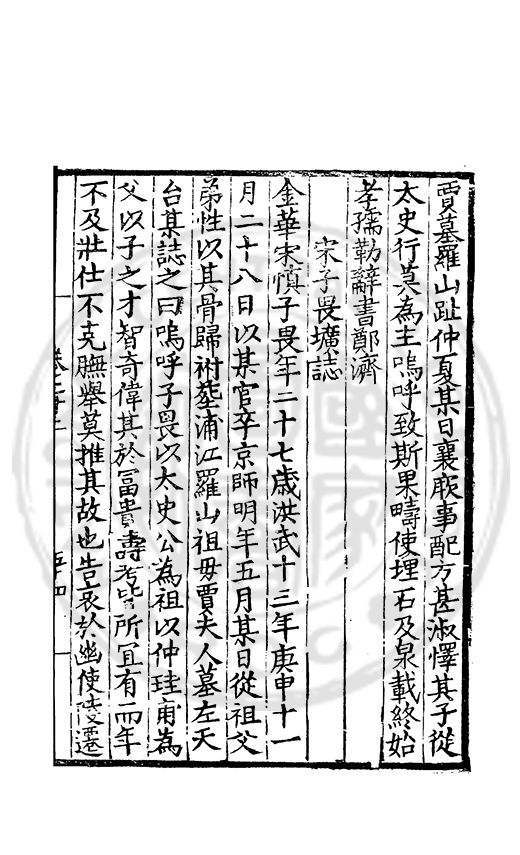 賈墓羅山趾仲夏某日襄厥事配方甚淑懌其子從
太史行莫為主嗚呼致斯果疇使埋石及泉載終始
孝孺勒辭書鄭濟
宋子畏壙誌
金華宋慎子畏年二十七歲洪武十三年庚申十一
月二十八日以某官卒京師明年五月某日從祖父
弟性以其骨歸祔塟浦江羅山祖毋賈夫人墓左天
台某誌之曰嗚呼子畏以太史公為祖以仲珪甫為
父以子之才智奇偉其於冨貴壽考皆所宜有而年
不及壯仕不克膴舉莫推其故也告哀於幽使陵遷